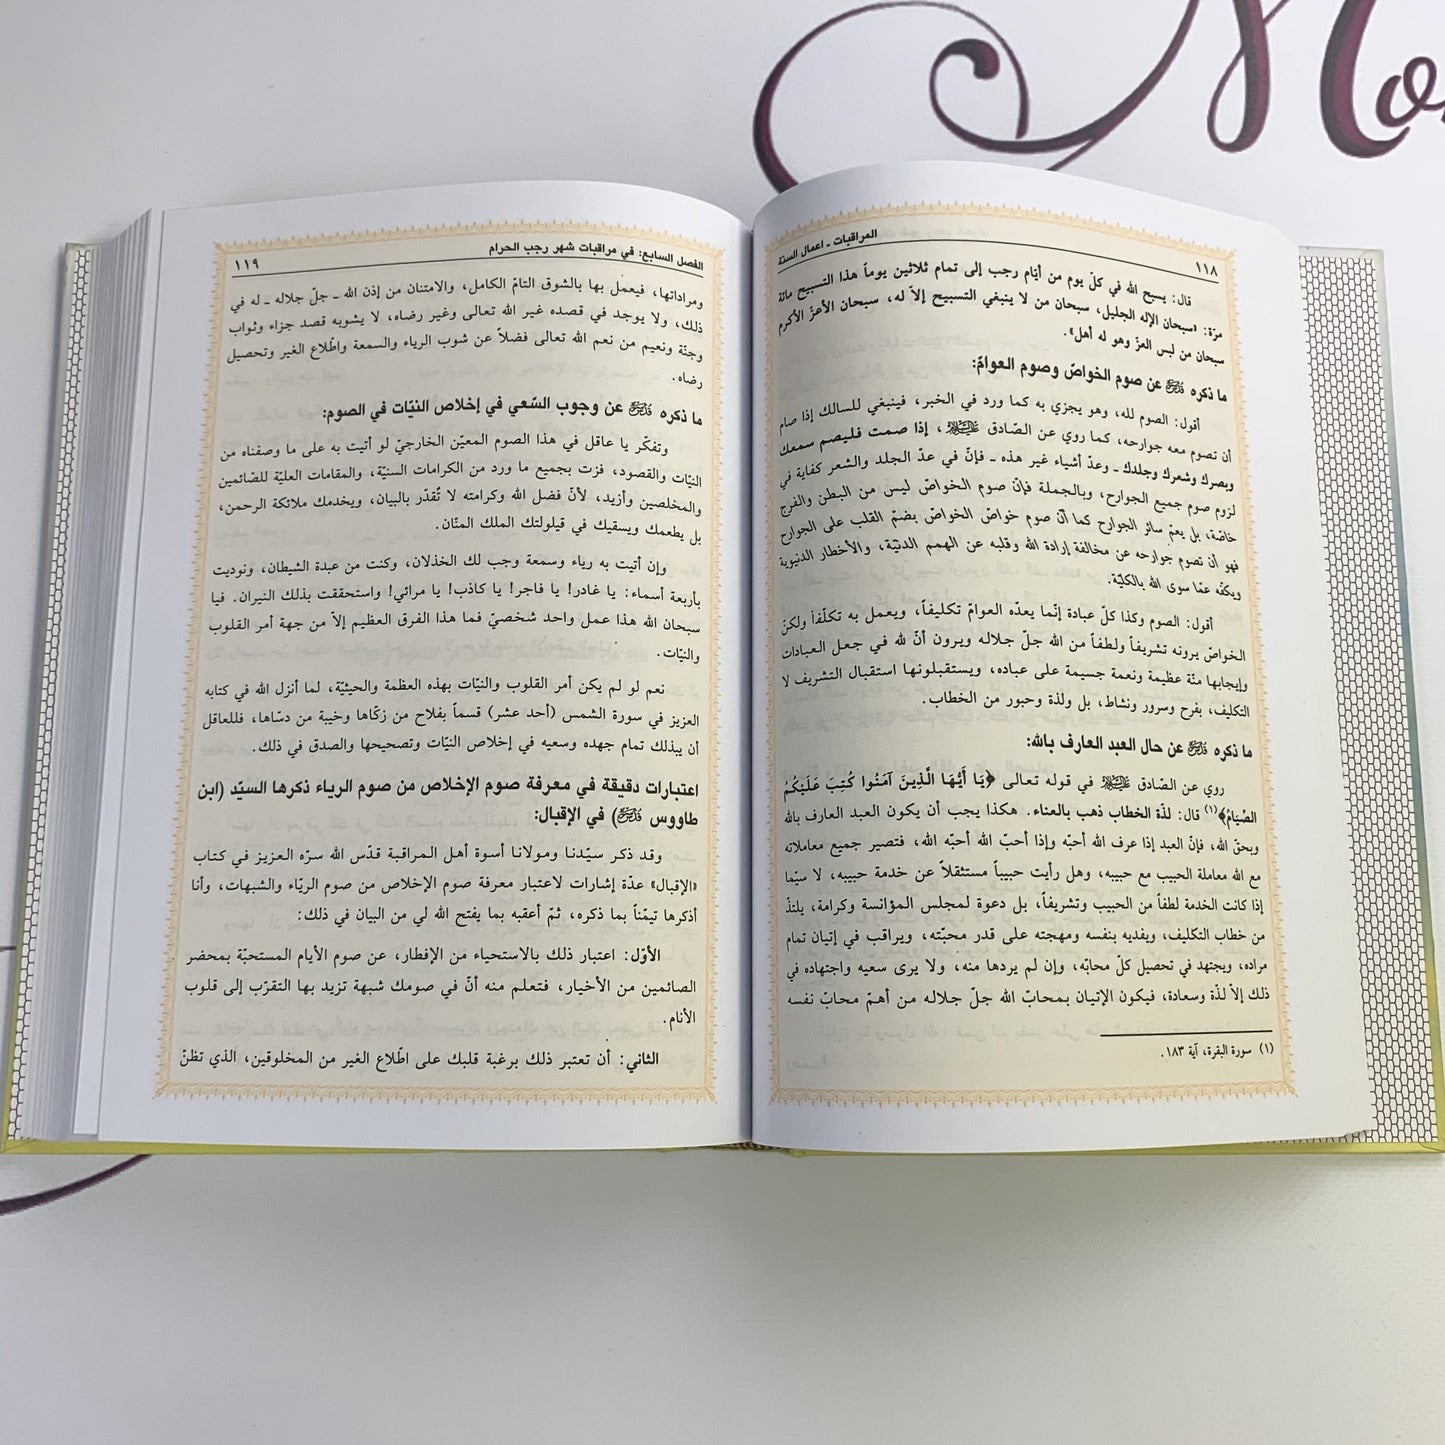 Mo
١١٨
المراقبات ـ أعمال السنة
قال: يسبح الله في كلّ يوم من أيّام رجب إلى تمام ثلاثين يوماً هذا التسبيح مائة
مرّة: «سبحان الإله الجليل، سبحان من لا ينبغي التسبيح إلاّ له، سبحان الأعزّ الأكرم
سبحان من لبس العزّ وهو له أهل».
ما ذكره قدس سره عن صوم الخواصّ وصوم العوامّ:
أقول: الصوم لله، وهو يجزي به كما ورد في الخبر، فينبغي للسالك إذا صام
أن تصوم معه جوارحه، كما روي عن الصّادق عليه السلام، إذا صمت فليصم سمعك
وبصرك وشعرك وجلدك ـ وعدّ أشياء غير هذه ـ فإنّ في عدّ الجلد والشعر كفاية في
لزوم صوم جميع الجوارح، وبالجملة فإنّ صوم الخواصّ ليس من البطن والفرج
خاصّة، بل يعمّ سائر الجوارح كما أنّ صوم خواصّ الخواصّ بضمّ القلب على الجوارح
فهو أن تصوم جوارحه عن مخالفة إرادة الله وقلبه عن الهمم الدنيّة، والأخطار الدنيوية
ويكفّه عمّا سوى الله بالكليّة.
أقول: الصوم وكذا كلّ عبادة إنّما يعدّه العوامّ تكليفاً، ويعمل به تكلّفاً ولكنّ
الخواصّ يرونه تشريفاً ولطفاً من الله جلّ جلاله ويرون أنّ لله في جعل العبادات
وإيجابها منّة عظيمة ونعمة جسيمة على عباده، ويستقبلونها استقبال التشريف لا
التكليف، بفرح وسرور ونشاط، بل ولذة وحبور من الخطاب.
ما ذكره قدس سره عن حال العبد العارف بالله:
روي عن الصّادق عليه السلام في قوله تعالى ﴿يَا أَيُّهَا الَّذِينَ آمَنُوا كُتِبَ عَلَيْكُمُ
الصِّيَامُ﴾(١) قال: لذّة الخطاب ذهب بالعناء. هكذا يجب أن يكون العبد العارف بالله
وبحقّ الله، فإنّ العبد إذا عرف الله أحبّه وإذا أحبّ الله أحبّه الله، فتصير جميع معاملاته
مع الله معاملة الحبيب مع حبيبه، وهل رأيت حبيباً مستثقلاً عن خدمة حبيبه، لا سيّما
إذا كانت الخدمة لطفاً من الحبيب وتشريفاً، بل دعوة لمجلس المؤانسة وكرامة، يلتذّ
من خطاب التكليف، ويفديه بنفسه ومهجته على قدر محبّته، ويراقب في إتيان تمام
مراده، ويجتهد في تحصيل كلّ محابّه، وإن لم يردها منه، ولا يرى سعيه واجتهاده في
ذلك إلاّ لذّة وسعادة، فيكون الإتيان بمحابّ الله جلّ جلاله من أهمّ محابّ نفسه
(١) سورة البقرة، آية ١٨٣.
الفصل السابع: في مراقبات شهر رجب الحرام
١١٩
ومراداتها، فيعمل بها بالشوق التامّ الكامل، والامتنان من إذن الله ـ جلّ جلاله ـ له في
ذلك، ولا يوجد في قصده غير الله تعالى وغير رضاه، لا يشوبه قصد جزاء وثواب
وجنّة ونعيم من نعم الله تعالى فضلاً عن شوب الرياء والسمعة واطّلاع الغير وتحصيل
رضاه.
ما ذكره قدس سره عن وجوب السّعي في إخلاص النيّات في الصوم:
وتفكّر يا عاقل في هذا الصوم المعيّن الخارجيّ لو أتيت به على ما وصفناه من
النيّات والقصود، فزت بجميع ما ورد من الكرامات السنيّة، والمقامات العليّة للصّائمين
والمخلصين وأزيد، لأنّ فضل الله وكرامته لا تُقدّر بالبيان، ويخدمك ملائكة الرحمن،
بل يطعمك ويسقيك في قيلولتك الملك المنّان.
وإن أتيت به رياء وسمعة وجب لك الخذلان، وكنت من عبدة الشيطان، ونوديت
بأربعة أسماء: يا غادر! يا فاجر! يا كاذب! يا مرائي! واستحققت بذلك النيران. فيا
سبحان الله هذا عمل واحد شخصيّ فما هذا الفرق العظيم إلاّ من جهة أمر القلوب
والنيّات.
نعم لو لم يكن أمر القلوب والنيّات بهذه العظمة والحيثيّة، لما أنزل الله في كتابه
العزيز في سورة الشمس (أحد عشر) قسماً بفلاح من زكّاها وخيبة من دسّاها، فللعاقل
أن يبذلك تمام جهده وسعيه في إخلاص النيّات وتصحيحها والصدق في ذلك.
اعتبارات دقيقة في معرفة صوم الإخلاص من صوم الرياء ذكرها السيّد (ابن
طاووس قدس سره) في الإقبال:
وقد ذكر سيّدنا ومولانا أسوة أهل المراقبة قدّس الله سرّه العزيز في كتاب
«الإقبال» عدّة إشارات لاعتبار معرفة صوم الإخلاص من صوم الريّاء والشبهات، وأنا
أذكرها تيمّناً بما ذكره، ثمّ أعقبه بما يفتح الله لي من البيان في ذلك:
الأوّل: اعتبار ذلك بالاستحياء من الإفطار، عن صوم الأيام المستحبّة بمحضر
الصائمين من الأخيار، فتعلم منه أنّ في صومك شبهة تزيد بها التقرّب إلى قلوب
الأنام.
الثاني: أن تعتبر ذلك برغبة قلبك على اطّلاع الغير من المخلوقين، الذي تظنّ